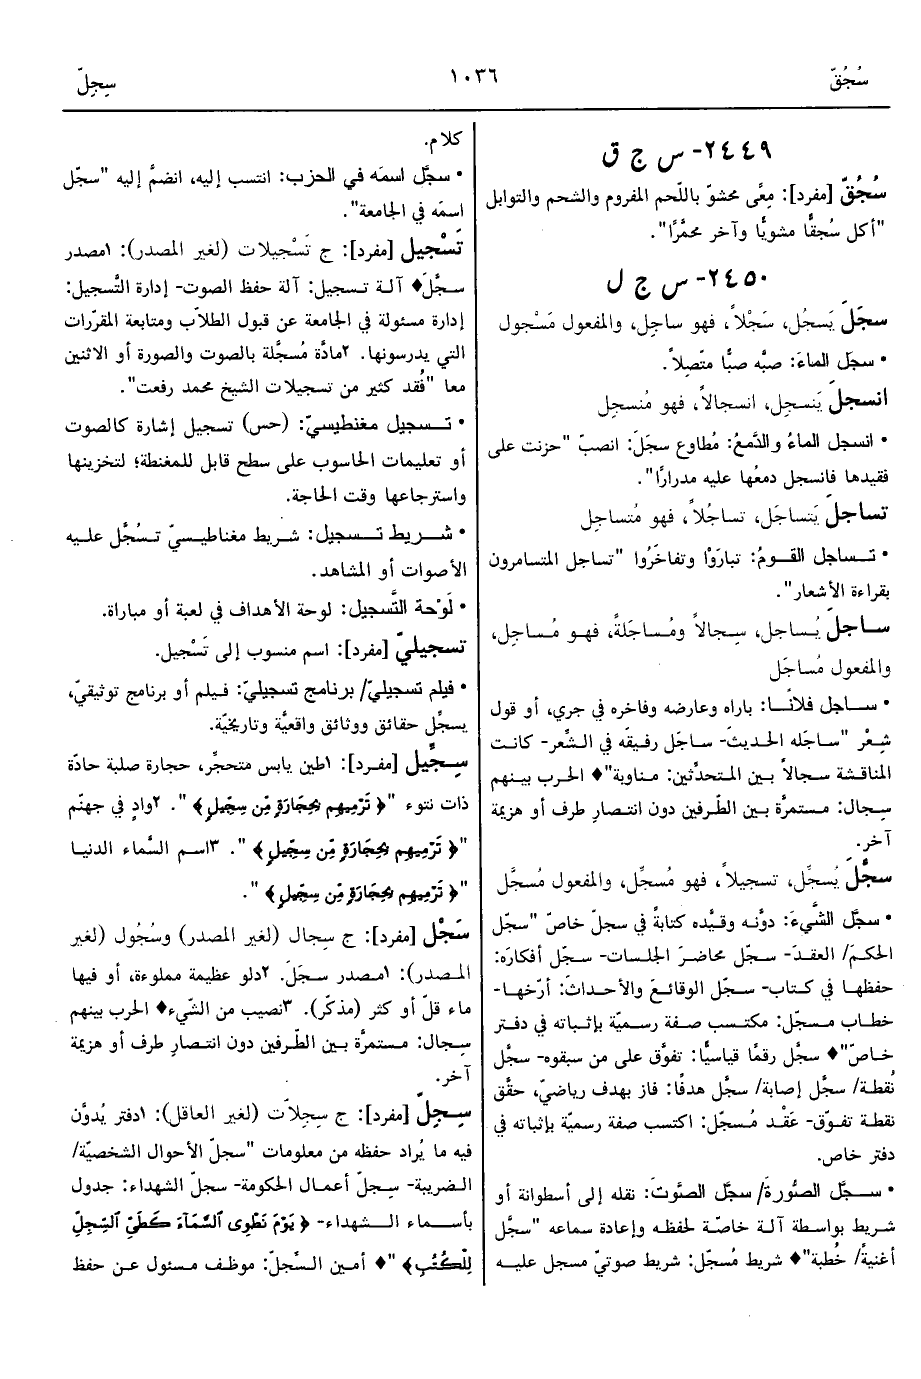 سُجُقّ
١٠٣٦
سِجِلّ
٢٤٤٩- س ج ق
سُجُقّ [مفرد]: مِعًى محشوّ باللّحم المفروم والشحم والتوابل
"أكل سُجقًّا مشويًّا وآخر محمَّرًا".
٢٤٥٠- س ج ل
سجَلَ يَسجُل، سَجْلاً، فهو ساجِل، والمفعول مَسْجول
• سجَل الماءَ: صبَّه صبًّا متّصِلاً.
انسجلَ يَنسجِل، انسجالاً، فهو مُنسجِل
• انسجل الماءُ والدَّمعُ: مُطاوع سجَلَ: انصبّ "حزنت على
فقيدها فانسجل دمعُها عليه مدرارًا".
تساجلَ يَتساجَل، تساجُلاً، فهو مُتساجِل
• تساجل القومُ: تبارَوْا وتفاخَرُوا "تساجل المتسامرون
بقراءة الأشعار".
ساجلَ يُساجل، سِجالاً ومُساجَلةً، فهو مُساجِل،
والمفعول مُساجَل
• ساجل فلانًا: باراه وعارضه وفاخره في جري، أو قول
شِعْر "ساجله الحديثَ- ساجَل رفيقَه في الشِّعر- كانت
المناقشة سجالاً بين المتحدِّثين: مناوبة"♦ الحرب بينهم
سِجال: مستمرَّة بين الطَّرفين دون انتصارِ طرف أو هزيمة
آخر.
سجَّلَ يُسجِّل، تسجيلاً، فهو مُسجِّل، والمفعول مُسجَّل
• سجَّل الشَّيءَ: دوَّنه وقيَّده كتابةً في سجلّ خاصّ "سجّل
الحكمَ/ العقدَ- سجّل محاضرَ الجلسات- سجّل أفكارَه:
حفظها في كتاب- سجّل الوقائعَ والأحداثَ: أرّخها-
خطاب مسجّل: مكتسب صفة رسميّة بإثباته في دفتر
خاصّ"♦ سجَّل رقمًا قياسيًّا: تفوَّق على من سبقوه- سجَّل
نُقطة/ سجَّل إصابة/ سجَّل هدفًا: فاز بهدف رياضيّ، حقَّق
نقطة تفوّق- عَقْد مُسجَّل: اكتسب صفة رسميّة بإثباته في
دفتر خاص.
• سجَّل الصُّورةَ/ سجَّل الصَّوتَ: نقله إلى أسطوانة أو
شريط بواسطة آلة خاصّة لحفظه وإعادة سماعه "سجَّل
أغنيةً/ خُطبة"♦ شريط مُسجَّل: شريط صوتيّ مسجل عليه
كلام.
• سجَّل اسمَه في الحزب: انتسب إليه، انضمَّ إليه "سجّل
اسمَه في الجامعة".
تَسْجيل [مفرد]: ج تَسْجيلات (لغير المصدر): ١مصدر
سجَّلَ♦ آلة تسجيل: آلة حفظ الصوت- إدارة التَّسجيل:
إدارة مسئولة في الجامعة عن قبول الطلاّب ومتابعة المقرّرات
التي يدرسونها. ٢مادَّة مُسجَّلة بالصوت والصورة أو الاثنين
معا "فُقد كثير من تسجيلات الشيخ محمد رفعت".
• تسجيل مغنطيسيّ: (حس) تسجيل إشارة كالصوت
أو تعليمات الحاسوب على سطح قابل للمغنطة؛ لتخزينها
واسترجاعها وقت الحاجة.
• شريط تسجيل: شريط مغناطيسيّ تسُجَّل عليه
الأصوات أو المشاهد.
• لَوْحة التَّسجيل: لوحة الأهداف في لعبة أو مباراة.
تسجيليّ [مفرد]: اسم منسوب إلى تَسْجيل.
• فيلم تسجيليّ/ برنامج تسجيليّ: فيلم أو برنامج توثيقيّ،
يسجِّل حقائق ووثائق واقعيَّة وتاريخيّة.
سِجِّيل [مفرد]: ١طين يابس متحجِّر، حجارة صلبة حادّة
ذات نتوء "﴿ تَرْمِيهِم بِحِجَارَةٍ مِّن سِجِّيلٍ ﴾". ٢وادٍ في جهنّم
"﴿ تَرْمِيهِم بِحِجَارَةٍ مِّن سِجِّيلٍ ﴾". ٣اسم السَّماء الدنيا
"﴿ تَرْمِيهِم بِحِجَارَةٍ مِّن سِجِّيلٍ ﴾".
سَجْل [مفرد]: ج سِجال (لغير المصدر) وسُجُول (لغير
المصدر): ١مصدر سجَلَ. ٢دلو عظيمة مملوءة، أو فيها
ماء قلّ أو كثر (مذكّر). ٣نصيب من الشّيء♦ الحرب بينهم
سِجال: مستمرَّة بين الطّرفين دون انتصارِ طرف أو هزيمة
آخر.
سِجِلّ [مفرد]: ج سِجِلاّت (لغير العاقل): ١دفتر يُدوَّن
فيه ما يُراد حفظه من معلومات "سجلّ الأحوال الشخصيّة/
الضريبة- سِجلّ أعمال الحكومة- سجلّ الشهداء: جدول
بأسماء الشهداء- ﴿ يَوْمَ نَطْوِى ٱلسَّمَآءَ كَطَىِّ ٱلسِّجِلِّ
لِلْكُتُبِ ﴾"♦ أمين السِّجلّ: موظف مسئول عن حفظ